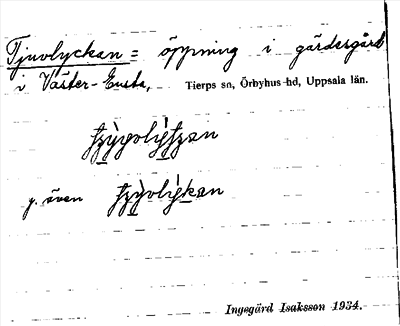 Tjuvlyckan = öppning i gärdesgård
i Väster-Ensta, Tierps sn, Örbyhus hd, Uppsala län.
y. även
Ingegärd Isaksson 1934.